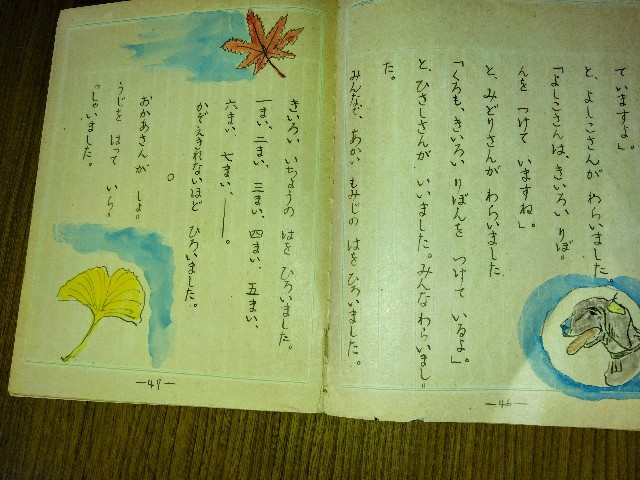 ていますよ」。
と、よしこさんが わらいました。
「よしこさんは、きいろい りぼ=
んを つけて いますね」。
と、みどりさんが わらいました
「くろも、きいろい りぼんを つけて いるよ」。
と、ひさしさんが いいました。みんな わらいまし=
た。
みんなで、あかい もみじの はを ひろいました。
—46—
きいろい いちょうの はを ひろいました。
一まい、二まい、三まい、四まい、五まい、
六まい、七まい、——。
かぞえきれないほど ひろいました。
○
おかあさんが しょ=
うじを はって いら=
っしゃいました。
—49—